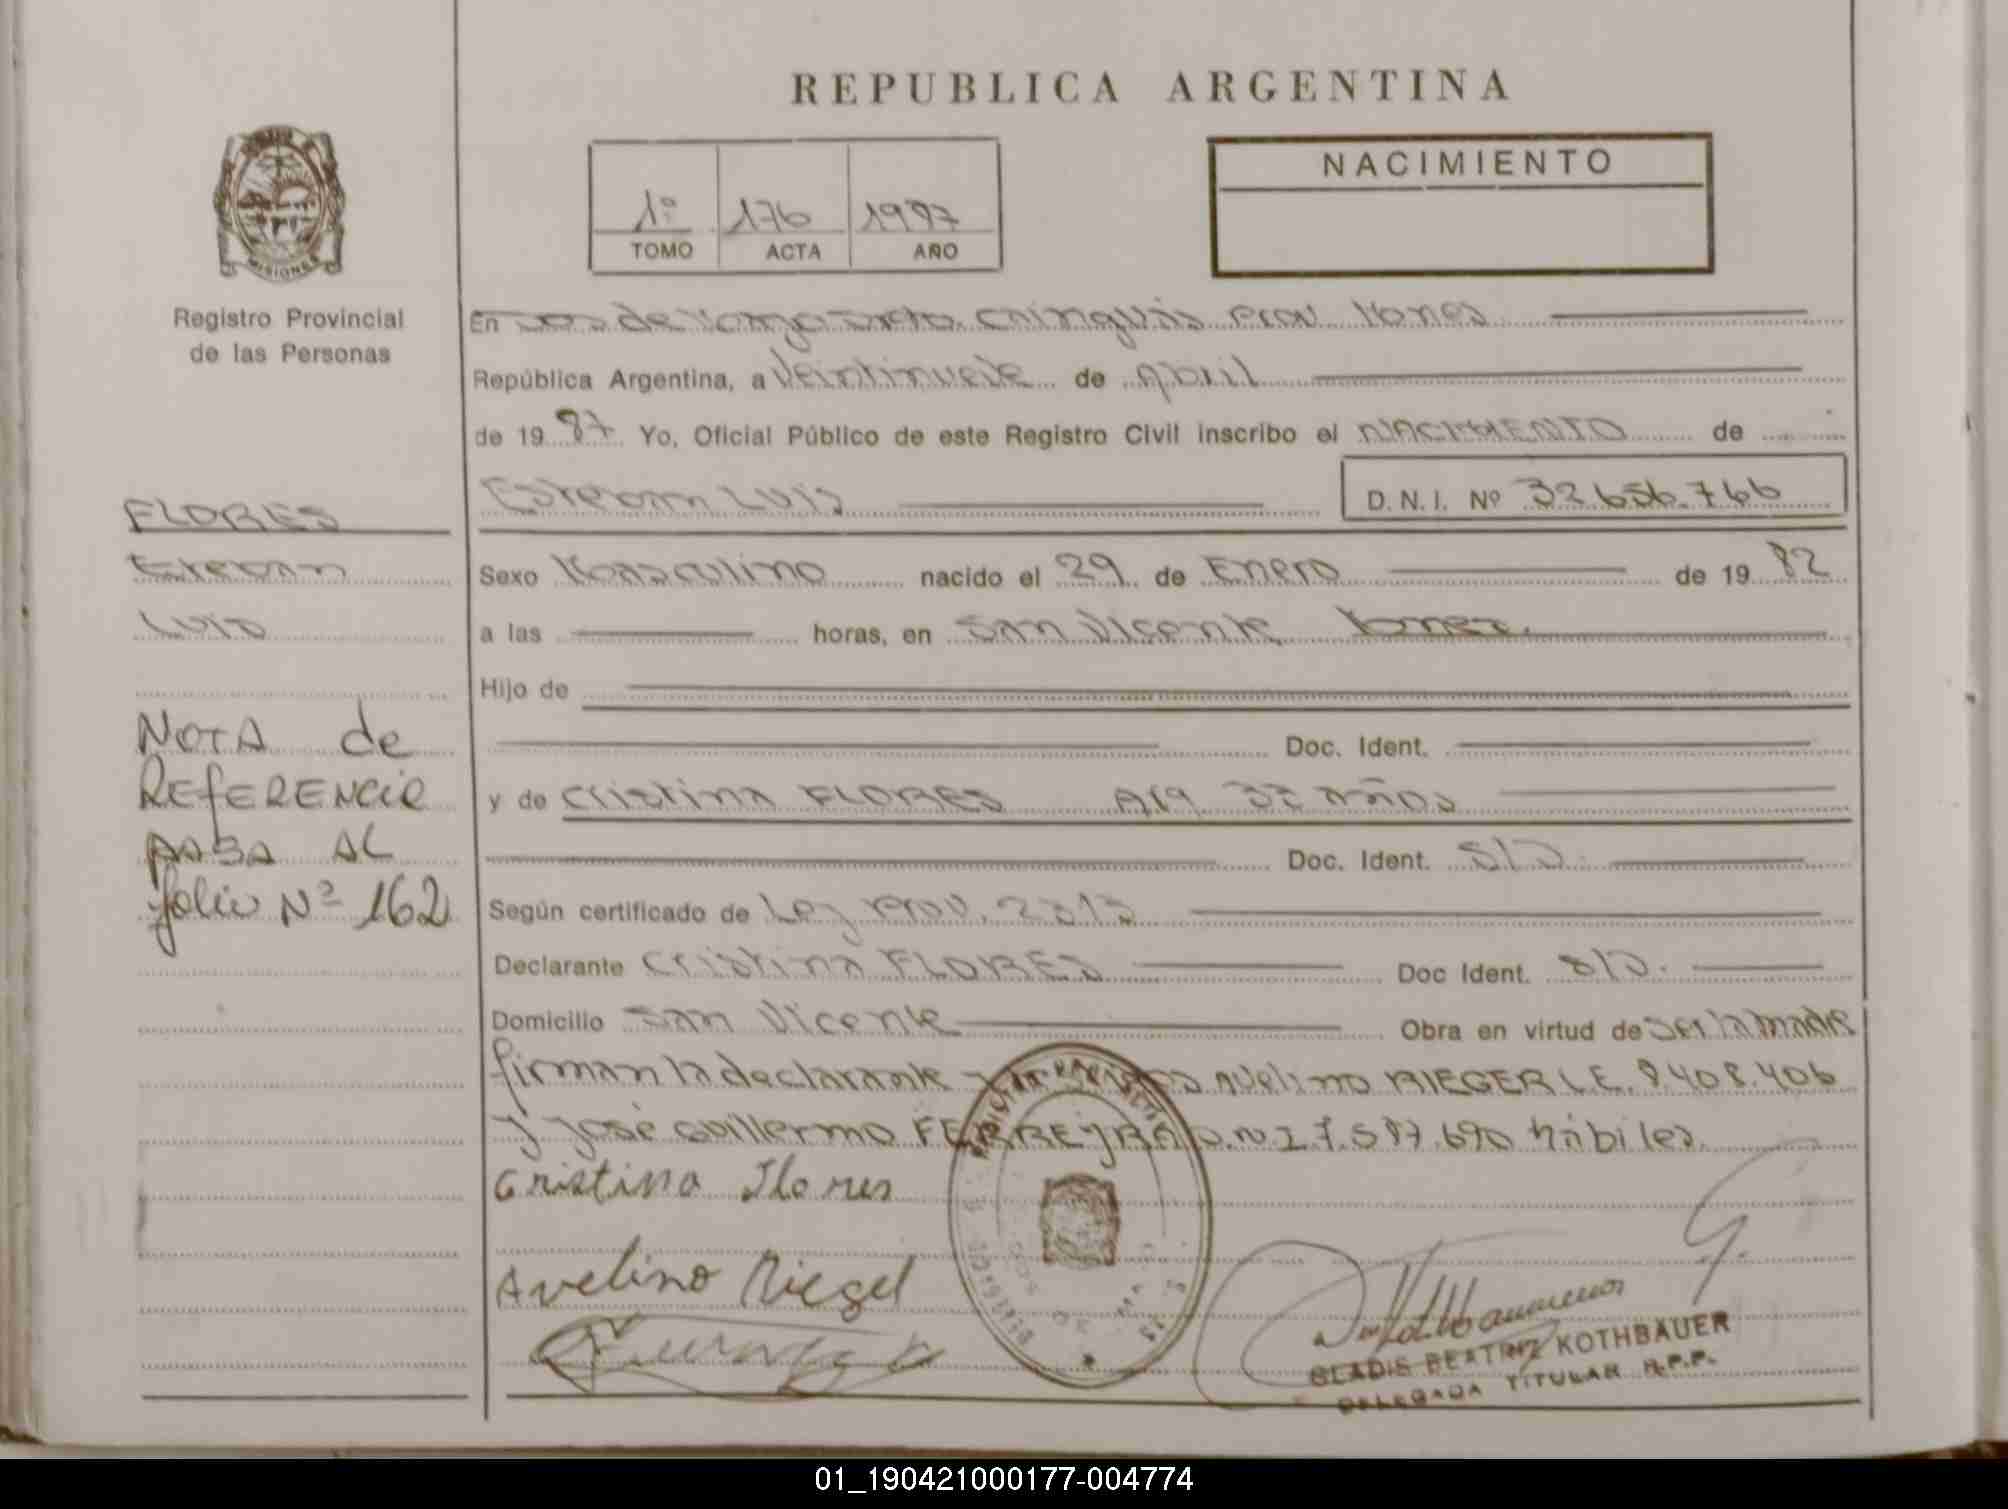 REPUBLICA ARGENTINA
MISIONES
Registro Provincial
de las Personas
1º 176 1987
TOMO ACTA AÑO
NACIMIENTO
En Dos de Mayo Dpto. Cainguás Prov. Mnes
República Argentina, a veintinueve de Abril
de 1987 Yo, Oficial Público de este Registro Civil inscribo el NACIMIENTO de
Esteban Luis D. N. I. Nº 32.656.766
FLORES
Esteban
Luis
Sexo Masculino nacido el 29 de Enero de 1982
a las horas, en San Vicente Mnes.
Hijo de
Doc. Ident.
y de Cristina FLORES Arg. 37 años
Doc. Ident. S/D.
Según certificado de Ley Prov. 2313
Declarante Cristina FLORES Doc Ident. S/D.
Domicilio San Vicente Obra en virtud de ser la madre
firman la declarante Avelino RIEGER L.E. 8.408.406
y José Guillermo FERREYRA D.N.I 7.587.690 hábiles.
NOTA de
REfERENCIA
PASA AL
folio Nº 162
Cristina Flores
Avelino Riegel
GLADIS BEATRIZ KOTHBAUER
DELEGADA TITULAR R.P.P.
01_190421000177-004774